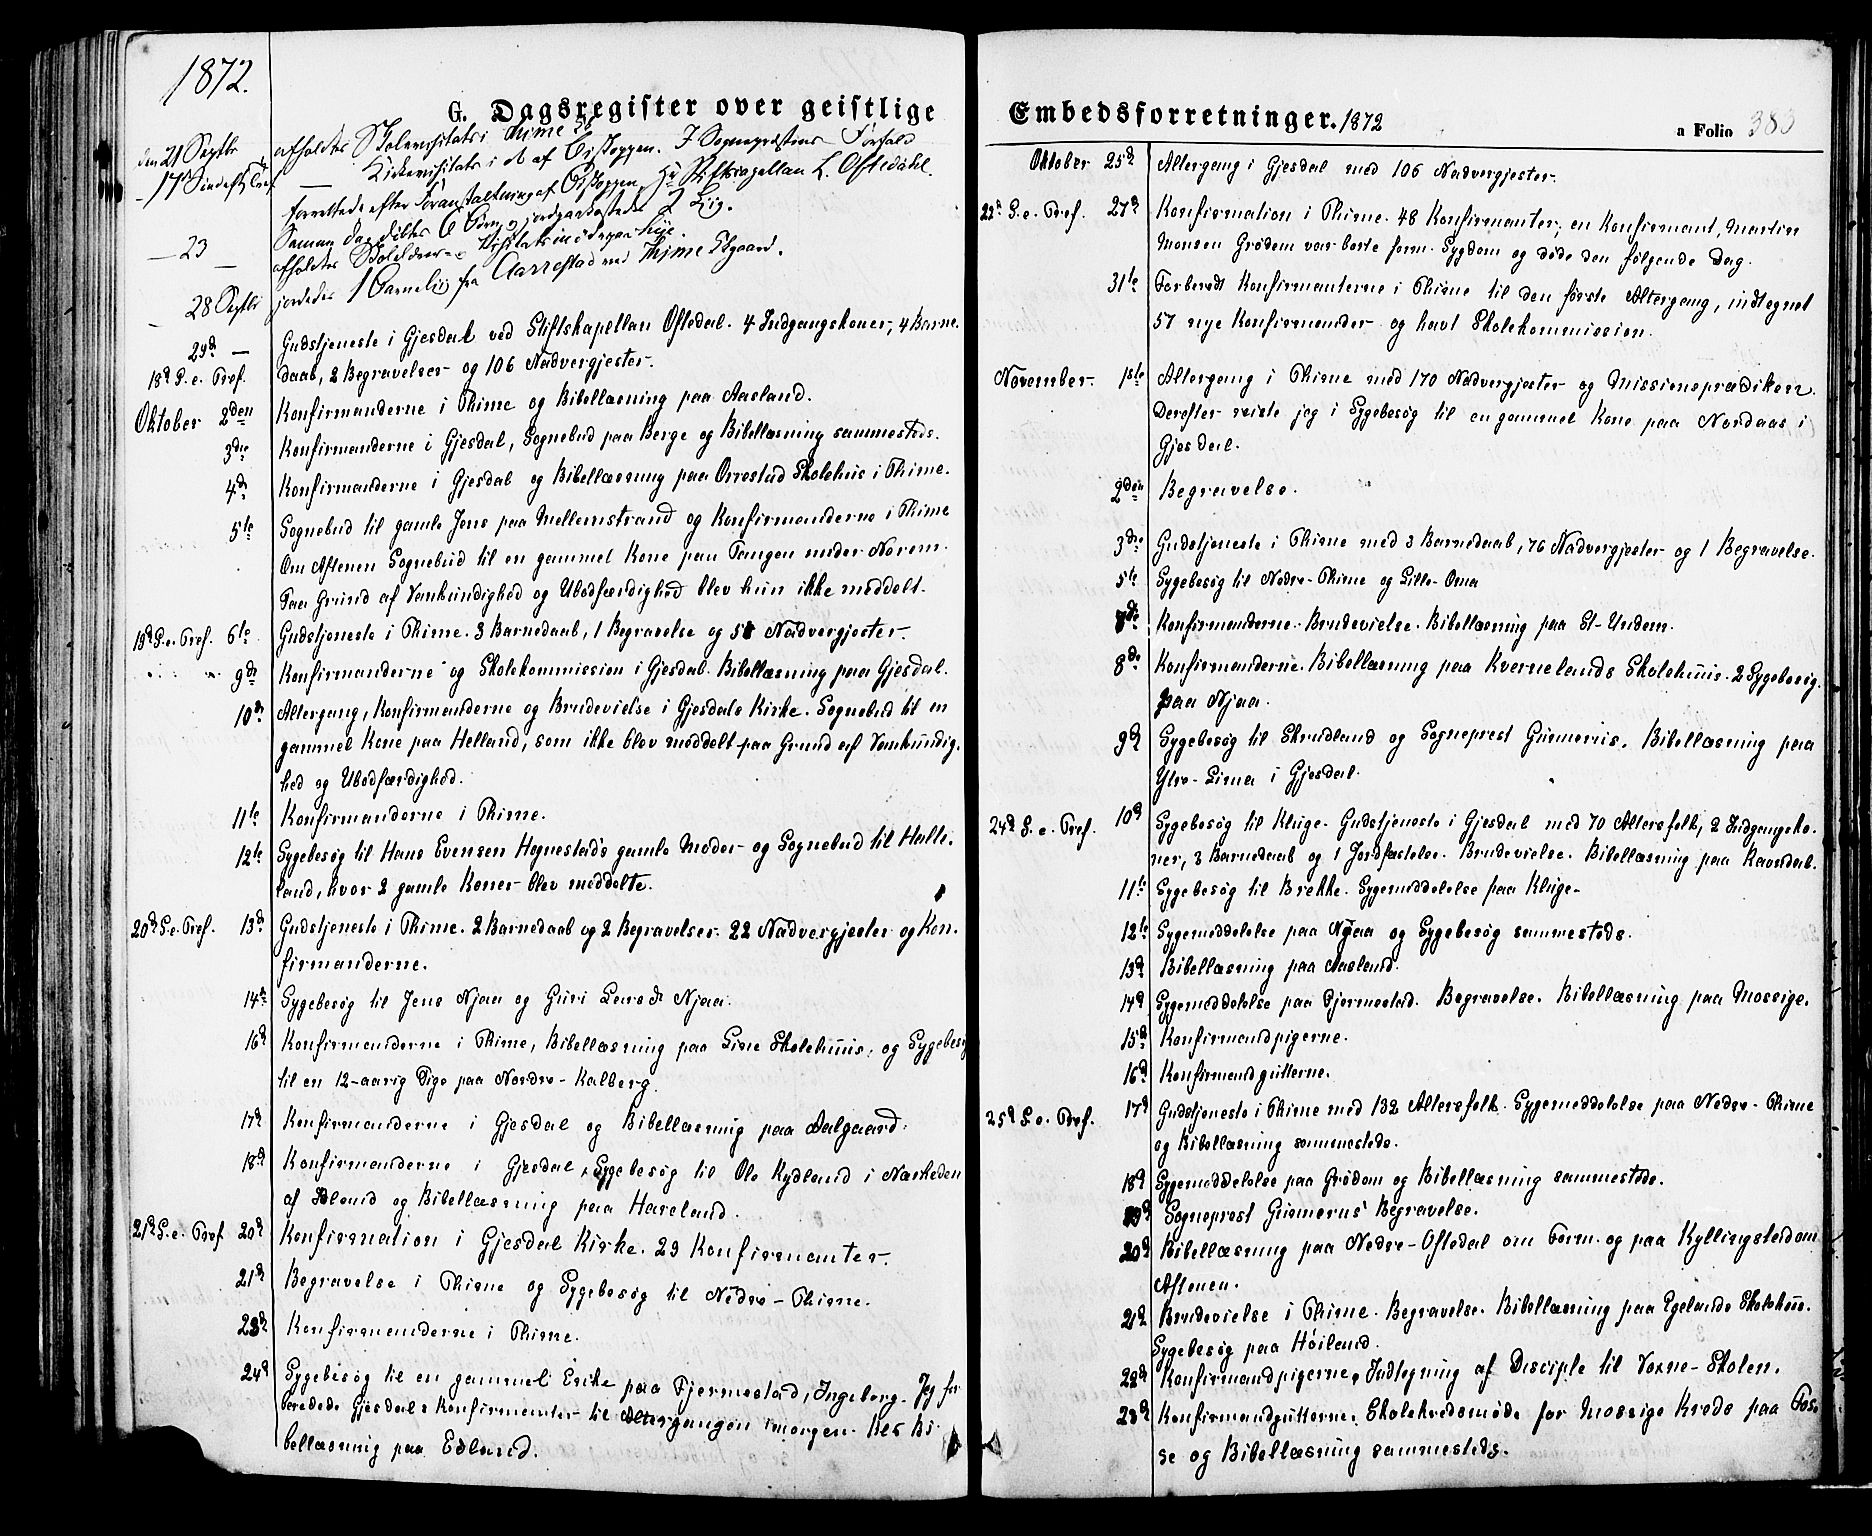 1872.
G. Dagsregister over geistlige
den 21 Septbr afholdtes Skolevisitats i Thime
17 Søndag e. Tref. — Kirkevisitats i af Biskoppen. I Sognepræstens Forfald
forrettede efter Foranstaltning af Biskoppen, Hr Stiftscapellan L. Oftedahl.
Samme Dag døbtes 6 Børn og jordpaakastedes 2 Liig.
— 23 — afholdtes
— 28 Septbr jordedes 1 Barnelig fra Aarrestad ved Thime
29d — Gudstjeneste i Gjesdal ved Stiftskapellan Oftedal. 4 Indgangskoner, 4 Barne-
18d S. e. Tref. daab, 2 Begravelser og 106 Nadvergjester.
Oktober 2den Konfirmanderne i Thime og Bibellæsning paa Aasland.
3die Konfirmanderne i Gjesdal, Sognebud paa Berge og Bibellæsning sammesteds.
4de Konfirmanderne i Gjesdal og Bibellæsning paa Orrestad Skolehus i Thime.
5te Sognebud til gamle Jens paa Mellemstrand og Konfirmanderne i Thime
Om Aftenen Sognebud til en gammel Kone paa Tangen under Norem.
Paa Grund af Vankundighed og Ubodfærdighed blev hun ikke meddelt.
19d S. e. Tref. 6te Gudstjeneste i Thime. 3 Barnedaab, 1 Begravelse og 51 Nadvergjester.
9de Konfirmanderne og Skolekommission i Gjesdal. Bibellæsning paa Gjesdal.
10de Altergang, Konfirmanderne og Brudevielse i Gjesdals Kirke. Sognebud til en
gammel Kone paa Helland, som ikke blev meddelt paa Grund af Vankundig-
hed og Ubodfærdighed.
11te Konfirmanderne i Thime.
12te Sygebesøg til Hans Evensen Hognestads gamle Moder og Sognebud til Helle-
land, hvor 2 gamle Koner blev meddelte.
20d S. e. Tref. 13de Gudstjeneste i Thime. 2 Barnedaab og 2 Begravelser. 22 Nadvergjester og Kon-
firmanderne.
14de Sygebesøg til Jens Njaa og Guri Larsdr Njaa.
16d Konfirmanderne i Thime, Bibellæsning paa Line Skolehuus, og Sygebesøg
til en 12-aarig Pige paa Nordre-Kalberg.
17d Konfirmanderne i Gjesdal og Bibellæsning paa Aalgaard.
18d Konfirmanderne i Gjesdal, Sygebesøg til Ole Kydland i Nærheden
af Edland og Bibellæsning paa Haveland.
21d S. e. Tref 20d Konfirmation i Gjesdal Kirke. 29 Konfirmanter.
21d Begravelse i Thime og Sygebesøg til Nedre-Thime.
23d Konfirmanderne i Thime.
24d Sygebesøg til en gammel Enke paa Tjermestad, Ingeborg. Jeg for
beredede Gjesdals Konfirmanter til Altergangen imorgen. Bi-
bellæsning paa Edland.
Embedsforretninger. 1872
a Folio 383
Oktober 25d Altergang i Gjesdal med 106 Nadvergjester.
22d S. e. Tref. 27d Konfirmation i Thime. 48 Konfirmanter; en Konfirmant, Martin
Monsen Grødem var borte form. Sygdom og døde den følgende Dag.
31te Forberedt Konfirmanterne i Thime til den første Altergang, indtegnet
57 nye Konfirmander og havt Skolekommission.
November. 1ste Altergang i Thime med 170 Nadvergjester og Missionsprædiken.
Derefter reiste jeg i Sygebesøg til en gammel Kone paa Nordaas i
Gjesdal.
2den Begravelse.
3die Gudstjeneste i Thime med 3 Barnedaab, 76 Nadvergjester og 1 Begravelse.
5te Sygebesøg til Nedre-Thime og Lille-Oma
7de Konfirmanderne. Brudevielse. Bibellæsning paa St-Undem.
8de Konfirmanderne. Bibellæsning paa Kvernelands Skolehuus. 2 Sygebesøg
paa Njaa.
9d Sygebesøg til Skrudland og Sogneprest Gunnerius. Bibellæsning paa
Ytre-Lima i Gjesdal.
24d S. e. Tref. 10d Sygebesøg til Kluge. Gudstjeneste i Gjesdal med 70 Altersfolk, 2 Indgangsko-
ner, 3 Barnedaab og 1 Jordfæstelse. Brudevielse. Bibellæsning paa Ravndal.
11te Sygebesøg til Brekke. Sygemeddelelse paa Kluge-
12te Sygemeddelelse paa Njaa og Sygebesøg sammesteds.
13d Bibellæsning paa Aasland.
14d Sygemeddelelse paa Tjermestad. Begravelse. Bibellæsning paa Mossige.
15d Konfirmandpigerne.
16d Konfirmandgutterne.
25d S. e. Tref. 17d Gudstjeneste i Thime med 132 Altersfolk. Sygemeddelelse paa Nedre-Thime
og Bibellæsning sammesteds.
18d Sygemeddelelse paa Grødem og Bibellæsning sammesteds.
19d Sogneprest Gunnerus' Begravelse.
20d Bibellæsning paa Nedre-Oftedal om Form. og paa Kyllingstad om
Aftenen.
21d Brudevielse i Thime. Begravelse. Bibellæsning paa Egelands Skolehus.
Sygebesøg paa Höiland.
22d Konfirmandpigerne, Indtegning af Disciple til Voxne-Skolen.
23d Konfirmandgutterne. Skolekredsmøde for Mossige Kreds paa Fos-
se og Bibellæsning sammesteds.